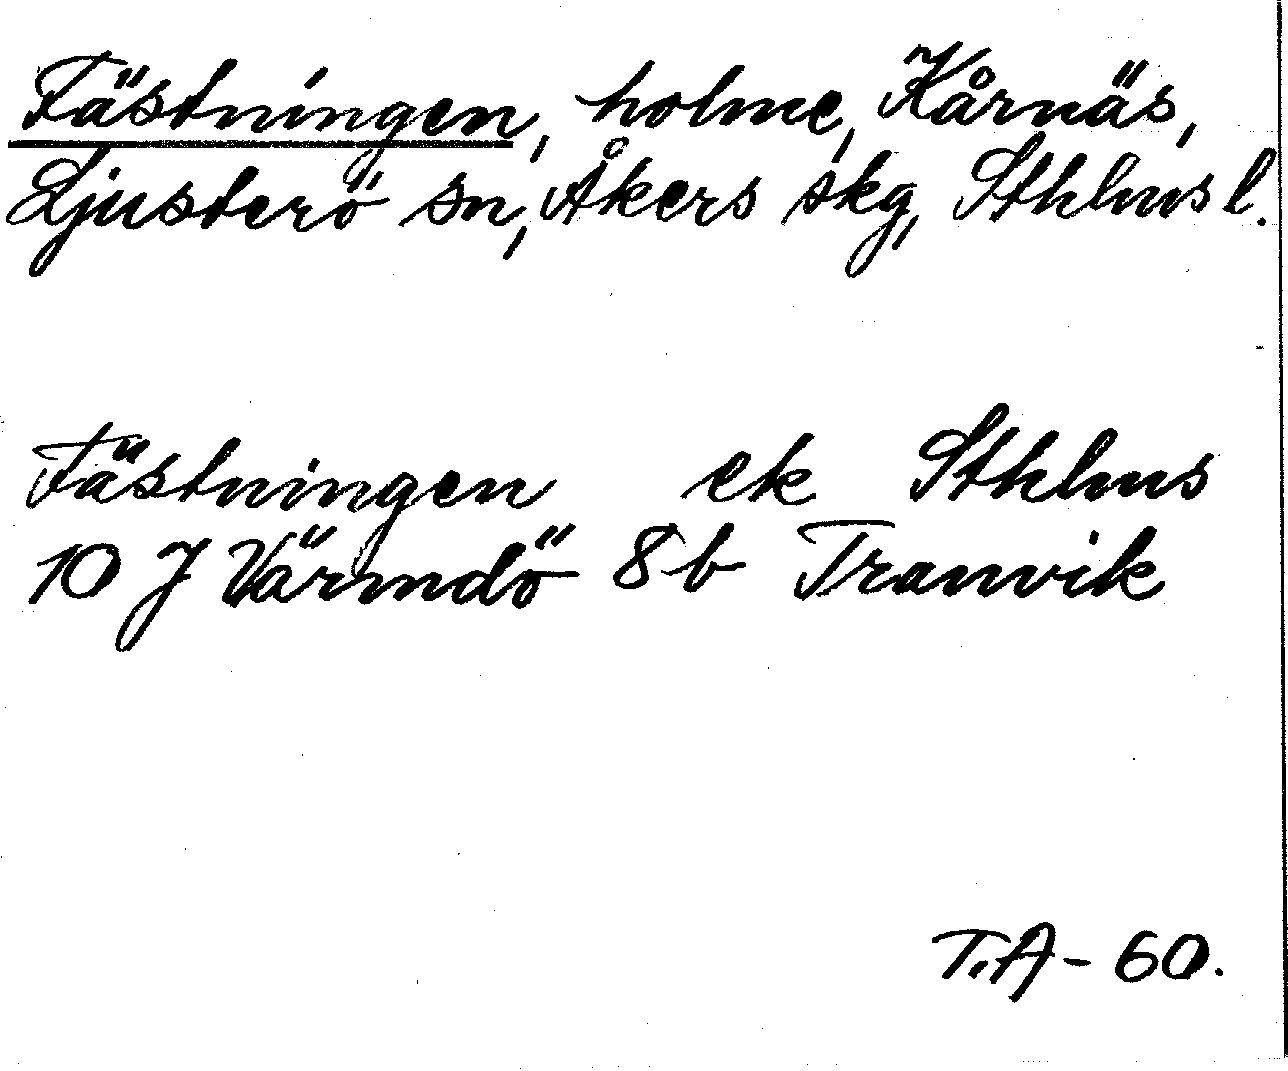 Fästningen, holme, Kårnäs,
Ljusterö sn, Åkers skg, Sthlms l.
Fästningen ek Sthlms
10 J Värmdö 8b Tranvik
T.A - 60.